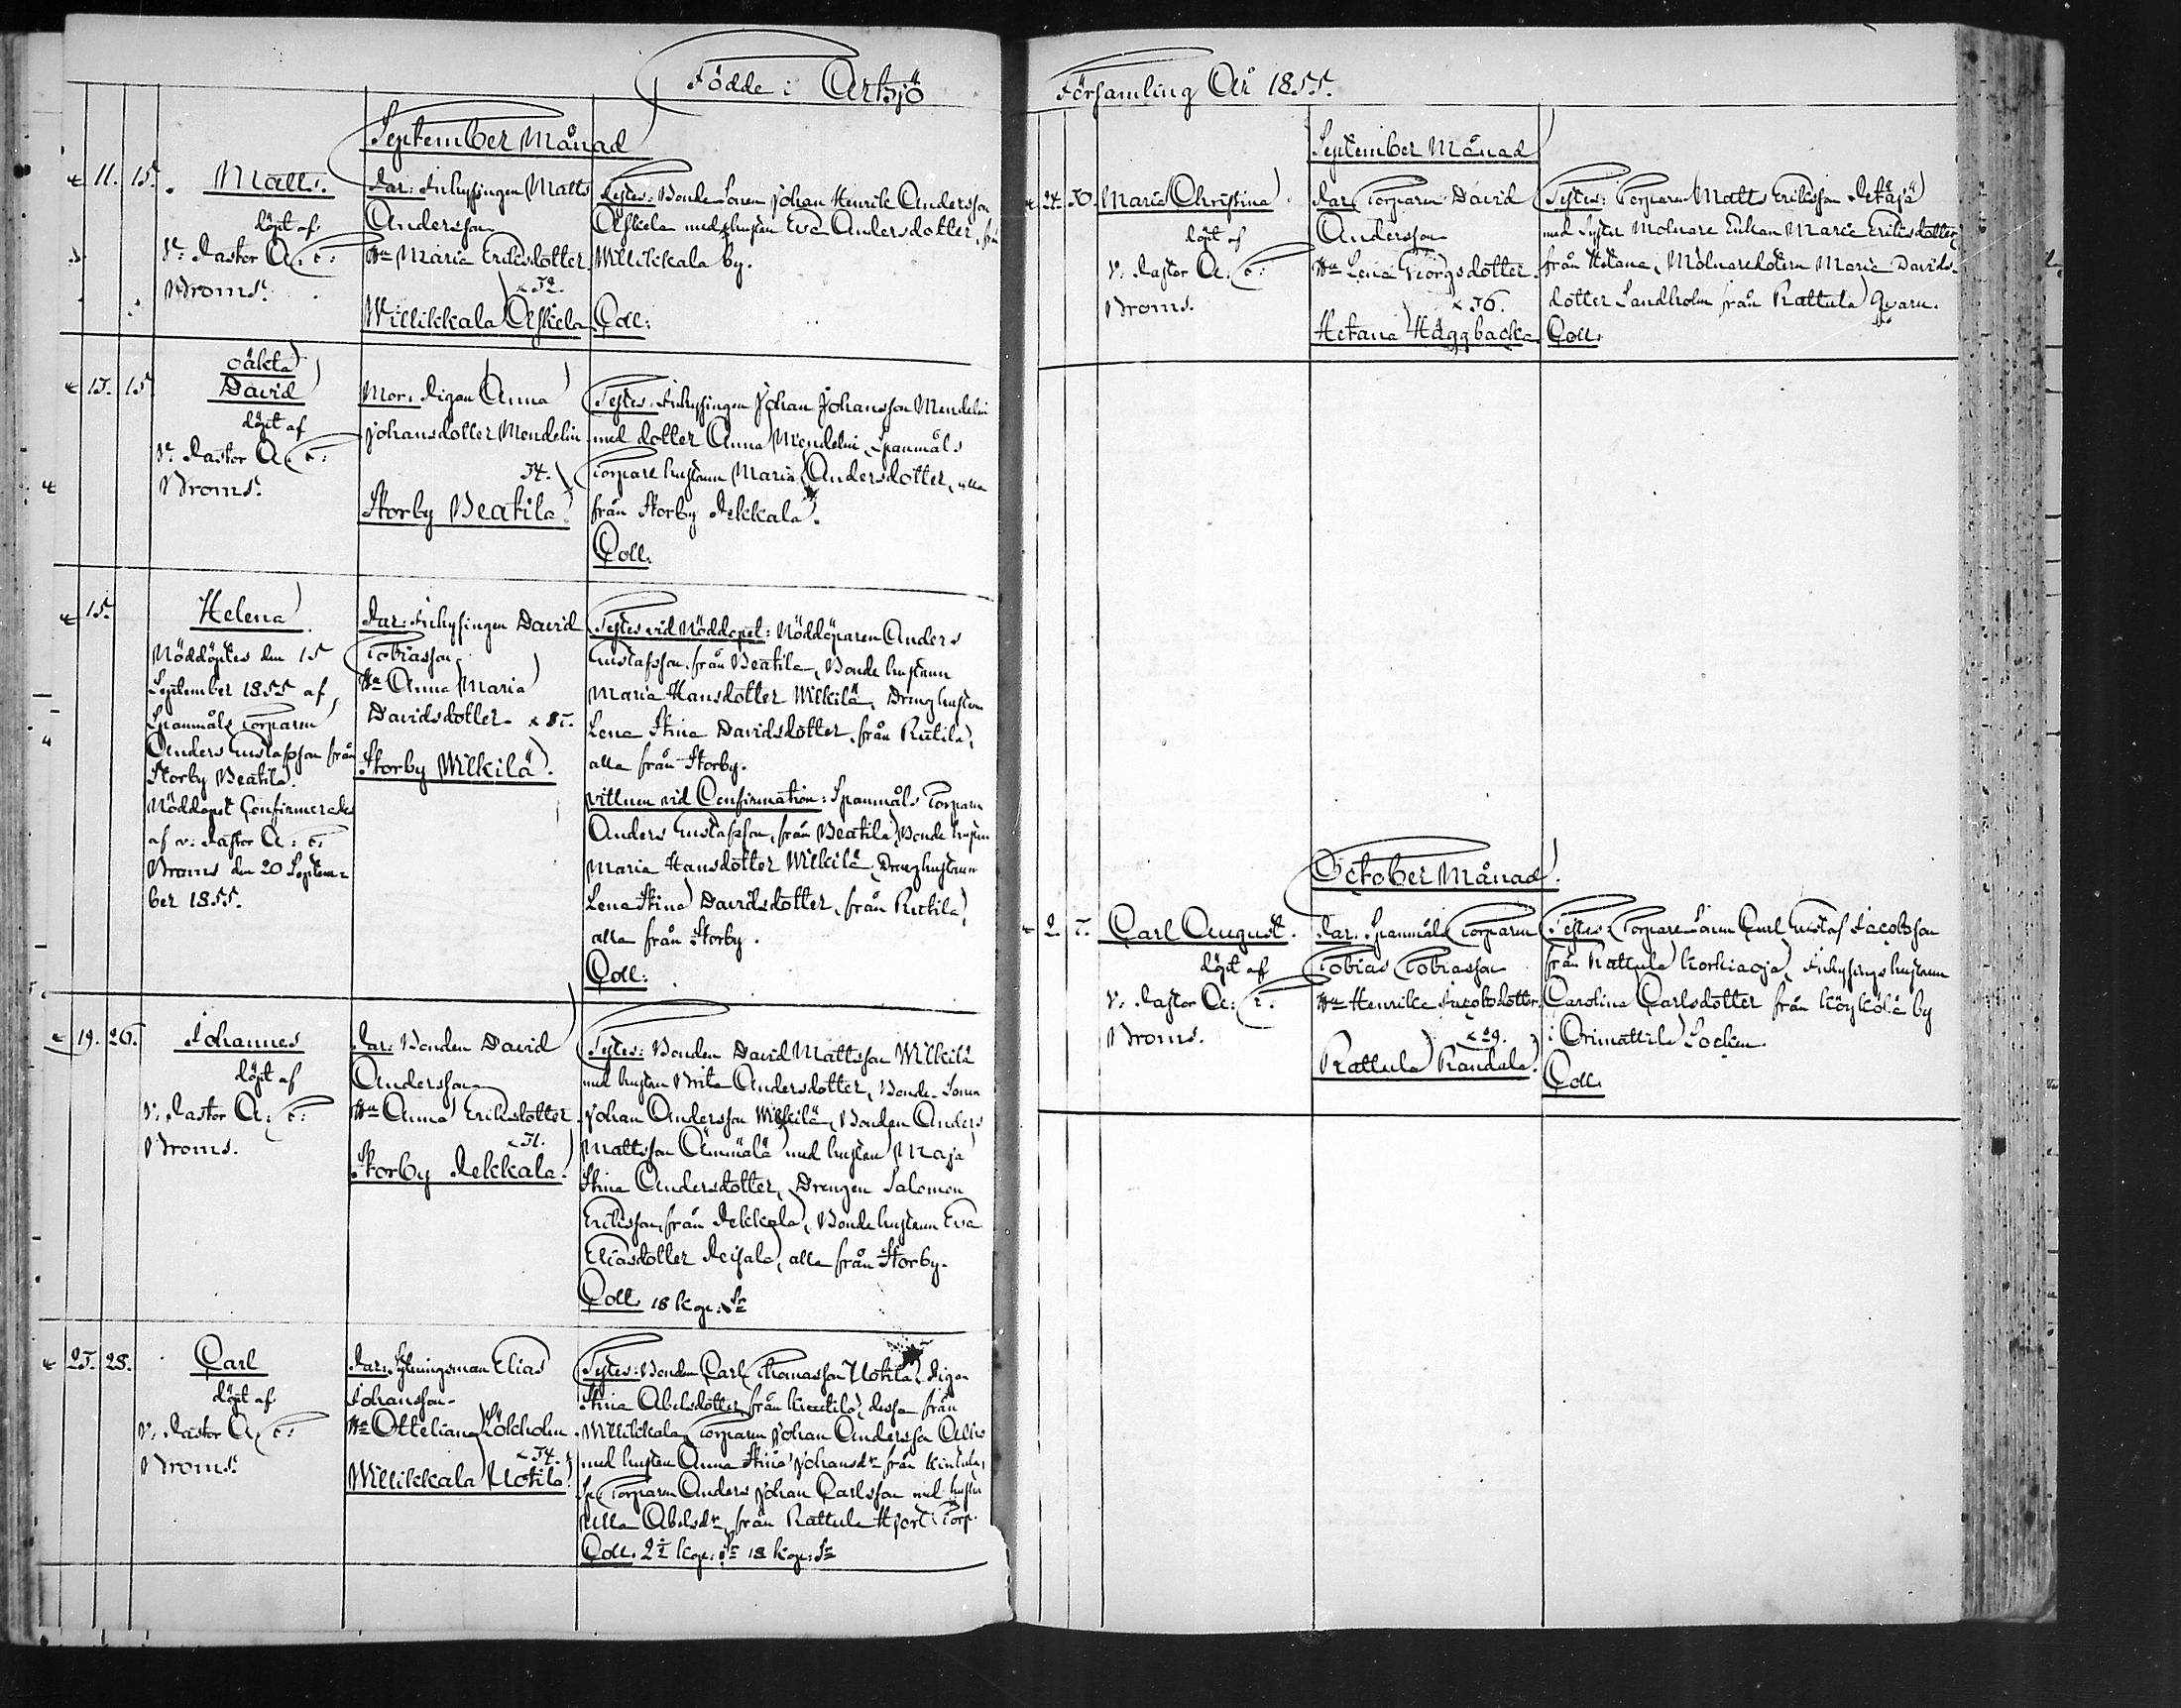 Födde i Artsjö
September Månad
11. 15. Matts.
döpt af
v: Pastor A: E:
Broms.
Far: Inhysingen Matts
Andersson
Hu Maria Eriksdotter
Willikkala Askela
Testes: Bonde Sonen Johan Henrik Andersson
Askela med hustru Eva Andersdotter, från
Willikkala by.
Coll:
15
oäkta
David
döpt af
v: Pastor A: E:
Broms.
Mor: Pigan Anna
Johansdotter Mendelin
34.
Storby Beatila
Testes: Inhysingen Johan Johansson Mendelin
med dotter Anna Mendelin, Spanmåls
Torpare hustrun Maria Andersdotter, alla
från Storby Pekkala.
Coll.
15. Helena
Nöddöptes den 15
September 1855 af
Spanmåls Torparen
Anders Gustafsson från
Storby Beatila.
Nöddopet Confirmerades
af v: Pastor A: E:
Broms den 20 Septem-
ber 1855.
Far: Inhysingen David
Tobiasson
Hu Anna Maria
Davidsdotter
Storby Wilkilä.
Testes vid Nöddopet: Nöddöparen Anders
Gustafsson från Beatila, Bonde hustrun
Maria Hansdotter Wilkilä, Dreng hustrun
Lena Stina Davidsdotter, från Rutila,
alla från Storby.
Vittnen vid Confirmation: Spanmåls Torparen
Anders Gustafsson, från Beatila, Bonde hustrun
Maria Hansdotter Wilkilä, Dreng hustrun
Lena Stina Davidsdotter, från Rutila,
alla från Storby.
Coll:
19. 26. Johannes
döpt af
v: Pastor A: E:
Broms.
Far: Bonden David
Andersson
Hu Anna Eriksdotter
31.
Storby Pekkala.
Testes: Bonden David Mattsson Wilkilä
med hustru Brita Andersdotter, Bonde-Sonen
Johan Andersson Wilkilä, Bonden Anders
Mattsson Ämmälä med hustru Maja
Stina Andersdotter, Drengen Salomon
Eriksson från Pekkala, Bonde hustrun Eva
Eliasdotter Peisala, alla från Storby.
Coll. 18 kop: Sr
23. 28. Carl
döpt af
v: Pastor A: E:
Broms.
Far: Sytningsman Elias
Johansson
Hu Otteliana Lökholm
34.
Willikkala Uotila
Testes: Bonden Carl Thomasson Uotila, Pigan
Stina Abelsdotter från, dessa från
Willikkala, Torparen Johan Andersson
med hustru Anna Stina Johansdr från Kintula,
Sp: Torparen Anders Johan Carlsson med hustru
Ulla Abelsdr, från Rattula Hjert Torp.
Coll. 2½ kop: Sr 18 kop: Sr
Församling År 1855.
September Månad
24. 30. Maria Christina
döpt af
v: Pastor A: E:
Broms.
Far Torparen David
Andersson
Hu Lena Georgsdotter
36.
Hetana Häggbacka
Testes: Torparen Matts Eriksson Petäjä
med Syster Molnare Enkan Maria Eriksdotter,
från Hetana, Mölnaredotern Maria Davids-
dotter Sandholm från Rattula Qvarn.
Coll.
October Månad.
2. Carl August.
döpt af
v: Pastor A: E:
Broms.
Far: Spanmåls Torparen
Tobias Tobiasson
Hu Henrika Jacobsdotter
29.
Rattula Randala.
Testes: Torpare Sonen Carl Gustaf Jacobsson
från Rattula Korkiaoja, Inhysings hustrun
Carolina Carlsdotter från Köykölä by
i Orimattila Socken.
Coll.